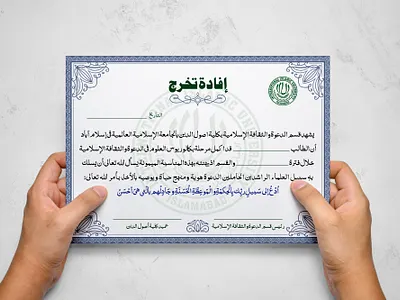 إفادة تخرج
التاريخ
يشهد قسم الدعوة والثقافة الإسلامية بكلية أصول الدين بالجامعة الإسلامية العالمية في إسلام آباد
أن الطالب قد أكمل مرحلة بكالوريوس العلوم في الدعوة والثقافة الإسلامية
خلال فترة والقسم إذ يهنئه بهذه المناسبة الميمونة يسأل الله تعالى أن يسلك
به سبيل العلماء الراشدين الحاملين الدعوة هوية ومنهج حياة ويوصيه بالأخذ بأمر الله تعالى:
ادْعُ إِلَى سَبِيلِ رَبِّكَ بِالْحِكْمَةِ وَالْمَوْعِظَةِ الْحَسَنَةِ وَجَادِلْهُم بِالَّتِي هِيَ أَحْسَنُ
رئيس قسم الدعوة والثقافة الإسلامية
عميد كلية أصول الدين